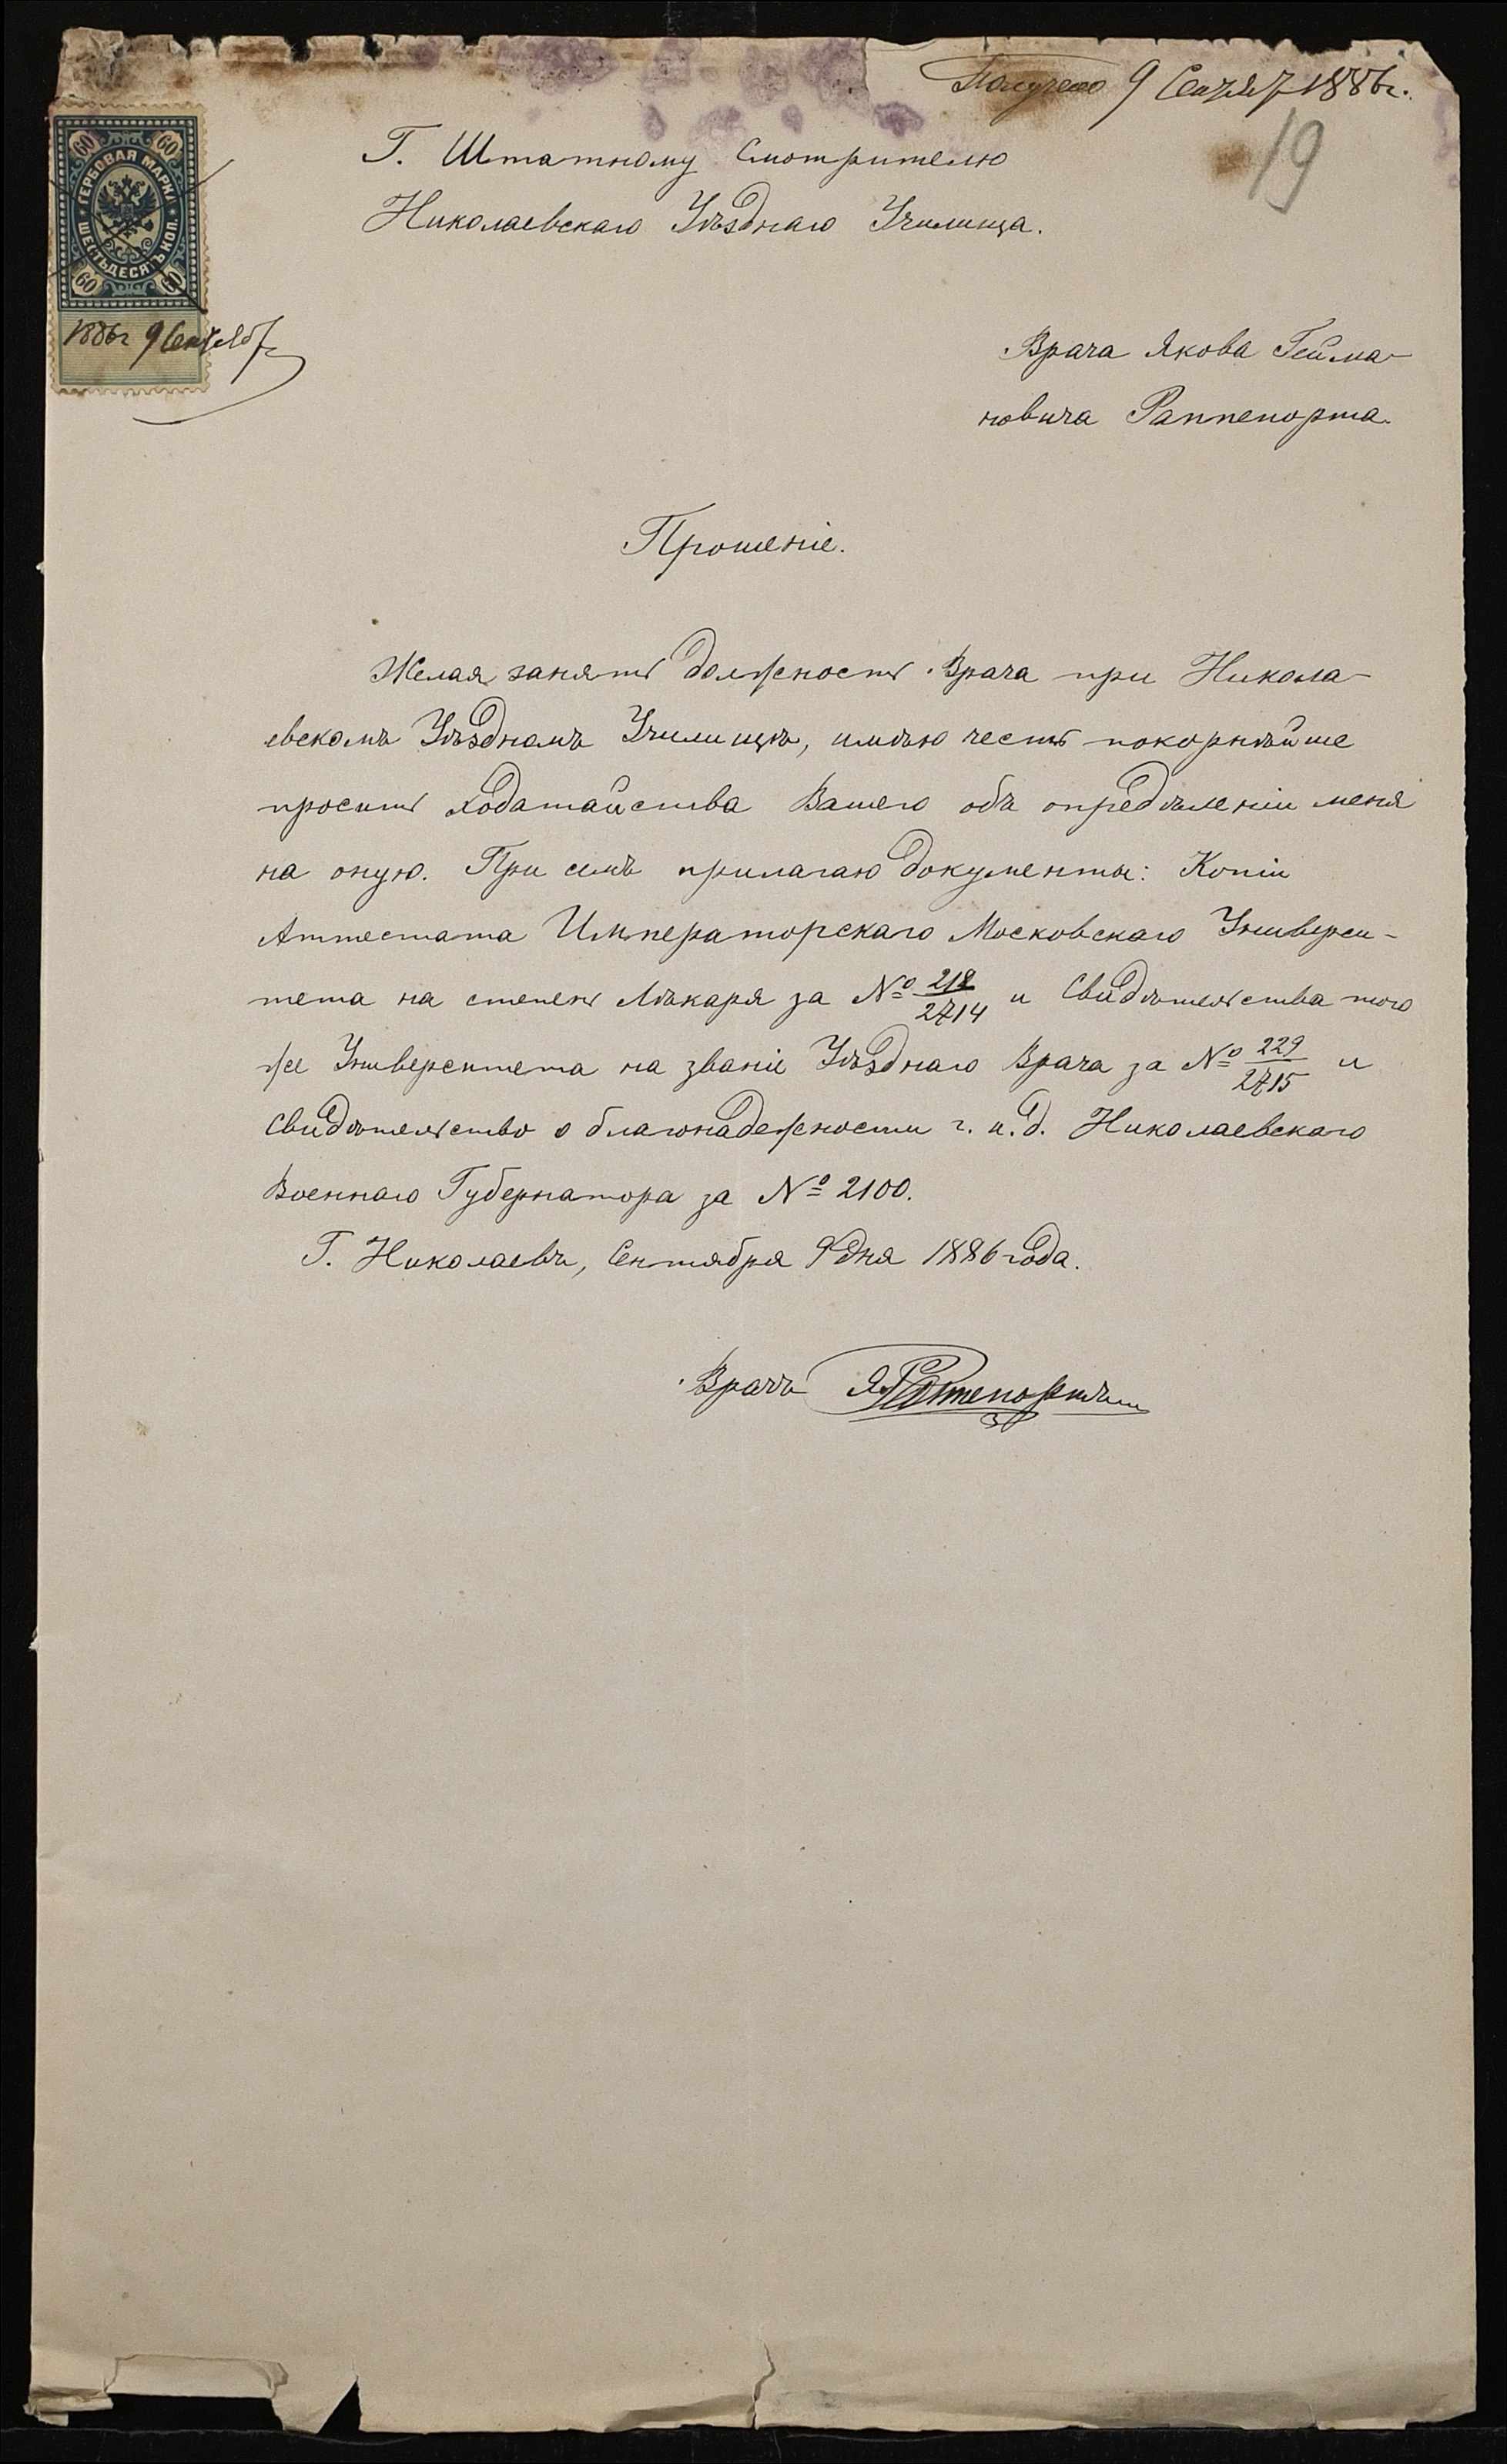 Получено 9 Сентяб 1886 г.
19
60 60
ГЕРБОВАЯ МАРКА
ШЕСТЬДЕСЯТЪ КОП.
60 60
1886 г 9 Сентяб
Г. Штатному Смотрителю
Николаевскаго Уѣзднаго Училища.
Врача Якова Гейма-
новича Раппепорта.
Прошеніе.
Желая занять должность Врача при Никола-
евскомъ Уѣздномъ Училищѣ, имѣю честь покорнѣйше
просить ходатайства Вашего объ опредѣленіи меня
на оную. При семъ прилагаю документы: Копіи
Аттестата Императорскаго Московскаго Универси-
тета на степень Лѣкаря за № 218/2714 и Свидѣтельства того
же Университета на званіе Уѣзднаго Врача за № 229/2715 и
Свидѣтельство о благонадежности г. и. д. Николаевскаго
Военнаго Губернатора за № 2100.
Г. Николаевъ, Сентября 9 дня 1886 года.
Врачъ Я Раппепортъ